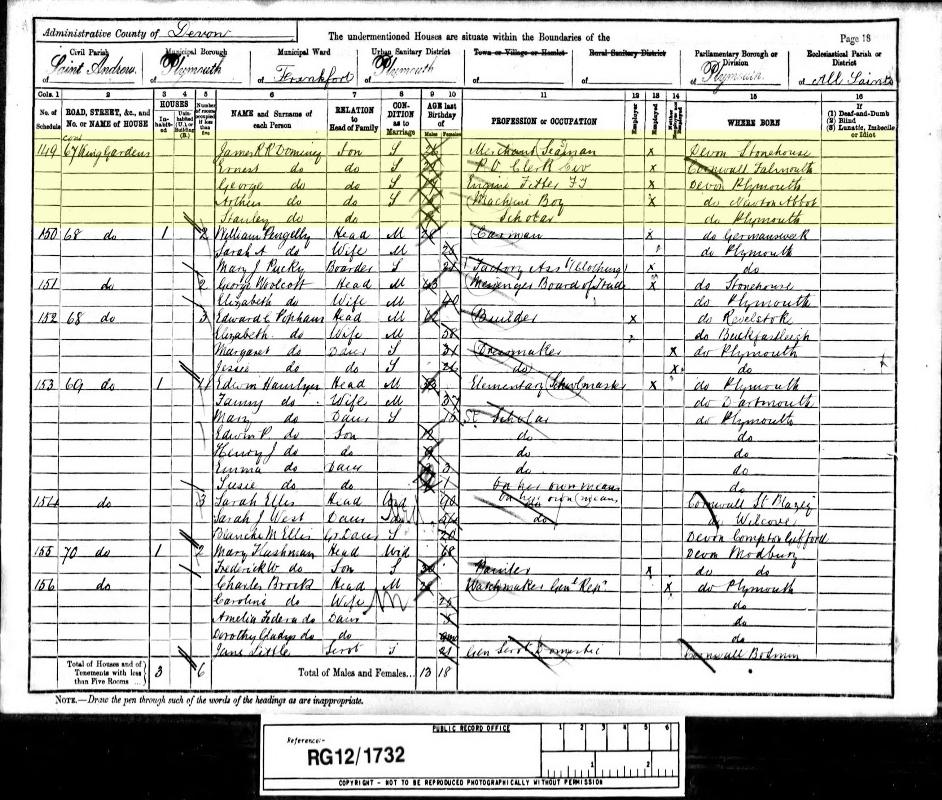 Administrative County of Devon
The undermentioned Houses are situate within the Boundaries of the
Page 18
Civil Parish
Municipal Borough
Municipal Ward
Urban Sanitary District
Town or Village or Hamlet
Rural Sanitary District
Parliamentary Borough or Division
Ecclesiastical Parish or District
of Saint Andrew
of Plymouth
of Frankfort
of Plymouth
of
of
of Plymouth
of All Saints
Cols. 1 2 3 4 5 6 7 8 9 10 11 12 13 14 15 16
No. of Schedule
ROAD, STREET, &c., and No. or NAME of HOUSE
HOUSES
Inhabited
Uninhabited (U.) or Building (B.)
Number of rooms occupied if less than five
NAME and Surname of each Person
RELATION to Head of Family
CONDITION as to Marriage
AGE last Birthday of
Males Females
PROFESSION or OCCUPATION
Employer
Employed
Neither Employer nor Employed
WHERE BORN
If
(1) Deaf-and-Dumb
(2) Blind
(3) Lunatic, Imbecile or Idiot
cont
149 67 Wing Gardens James R R Son S Merchant Seaman X Devon Stonehouse
Ernest do do S Clerk X Cornwall Falmouth
George do do S Engine Fitter X Devon Plymouth
Arthur do do S Machine Boy X do Newton Abbot
Stanley do do Scholar do Plymouth
150 68 do 1 2 William Pengelly Head M Carman X do Germansweek
Sarah A do Wife M do Plymouth
Mary J Boarder S Factory Ass (Clothing) X do
151 do 2 George Wolcott Head M 43 Messenger Board of Trade X do Stonehouse
Elizabeth do Wife M 40 do Plymouth
152 68 do 3 Edward C Head M Builder X do Revelstoke
Elizabeth do Wife M do Buckfastleigh
Margaret do Daur S Dressmaker X do Plymouth
Jessie do do S do X do
153 69 do 1 Edwin Head M Elementary Schoolmaster X do Plymouth
Fanny do Wife M 37 do Dartmouth
Mary do Daur S 10 Scholar do Plymouth
Edwin P. do Son do do
Henry J do do do do
Emma do Daur 3 do do
Susie do do 1 do
154 do 3 Sarah Ellis Head Wid 90 On her own means Cornwall St Blazey
Sarah J West Daur do do Wilcove
Blanche M Ellis Gr Daur S 20 Devon Compton Gifford
155 70 do 1 2 Mary Flashman Head Wid 68 Devon Modbury
Frederick W do Son S Painter X do do
156 do Charles Brock Head M Watchmaker Genl Repr X do Plymouth
Caroline do Wife M do
Amelia do Daur do
Dorothy Gladys do do do
Jane Little Servt S 21 Gen Servt Domestic Cornwall Bodmin
Total of Houses and of Tenements with less than Five Rooms 3 6
Total of Males and Females... 13 18
NOTE.—Draw the pen through such of the words of the headings as are inappropriate.
PUBLIC RECORD OFFICE
Reference:-
RG12/1732
1 2 3 4 5 6
1 2
COPYRIGHT - NOT TO BE REPRODUCED PHOTOGRAPHICALLY WITHOUT PERMISSION